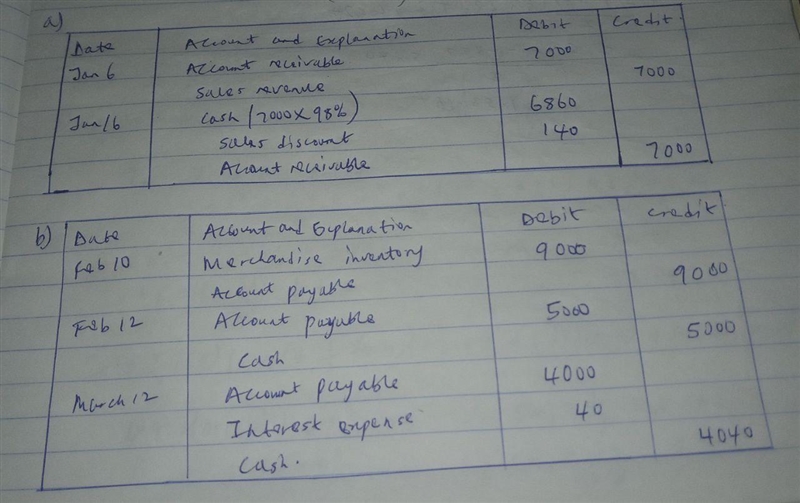 a)
Date Account and Explanation Debit Credit
Jan 6 Account receivable 7000
Sales revenue 7000
Jan 16 Cash (7000 x 98%) 6860
Sales discount 140
Account receivable 7000
b) Date Account and Explanation Debit Credit
Feb 10 Merchandise inventory 9000
Account payable 9000
Feb 12 Account payable 5000
Cash 5000
March 12 Account payable 4000
Interest expense 40
Cash. 4040